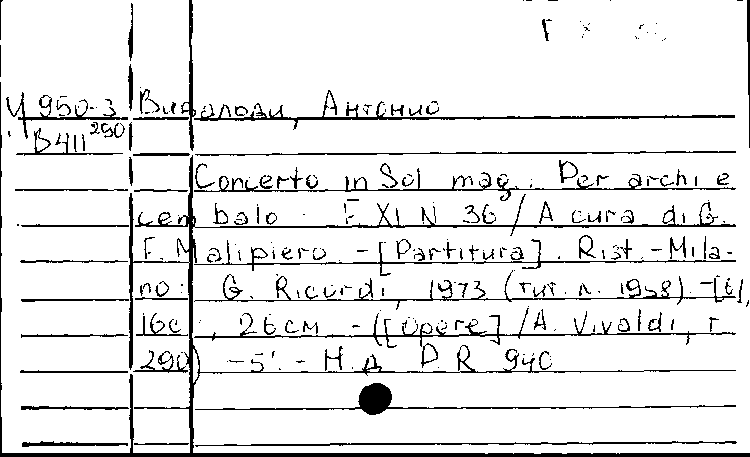 Ч 950-3 Вивальди, Антонио
В411 290
Concerto in Sol mag.: Per archi e
cembalo. F. XI N 36 / A cura di G.
F. Malipiero. - [Partitura]. Rist. - Mila-
no: G. Ricordi, 1973 (тит. л. 1958). - [6],
16c., 26 см. - ([Opere] / A. Vivaldi, т.
290) - 5'. - Н.д. P.R. 940